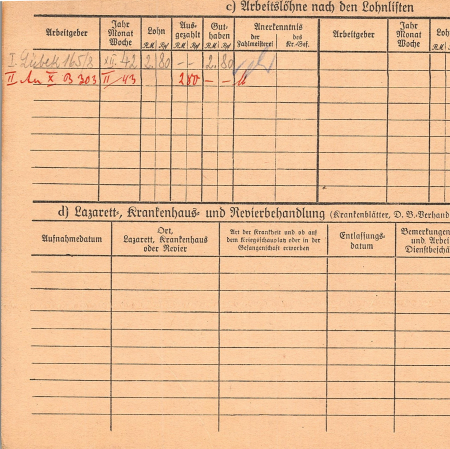 c) Arbeitslöhne nach den Lohnlisten
Arbeitgeber Jahr Monat Woche Lohn R.M. Rpf Ausgezahlt R.M. Rpf Guthaben R.M. Rpf Anerkenntnis der Zahlmeisterei des Kr.-Gef. Arbeitgeber Jahr Monat Woche
I. XII. 42 2 80 - - 2 80
II X B 303 II/43 - - 2 80 - -
d) Lazarett-, Krankenhaus- und Revierbehandlung (Krankenblätter, D. B.-Verhand
Aufnahmedatum Ort, Lazarett, Krankenhaus oder Revier Art der Krankheit und ob auf dem Kriegsschauplatz oder in der Gefangenschaft erworben Entlassungsdatum Bemerkungen und Arbei Dienstbeschä